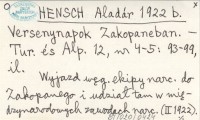 HENSCH Aladár 1922 b.
Versenynapok Zakopaneban. –
Tur. és Alp. 12, nr 4-5: 93-99,
il.
Wyjazd węg. ekipy narc. do
Zakopanego i udział tam w mię-
dzynarodowych zawodach narc. (II 1922).